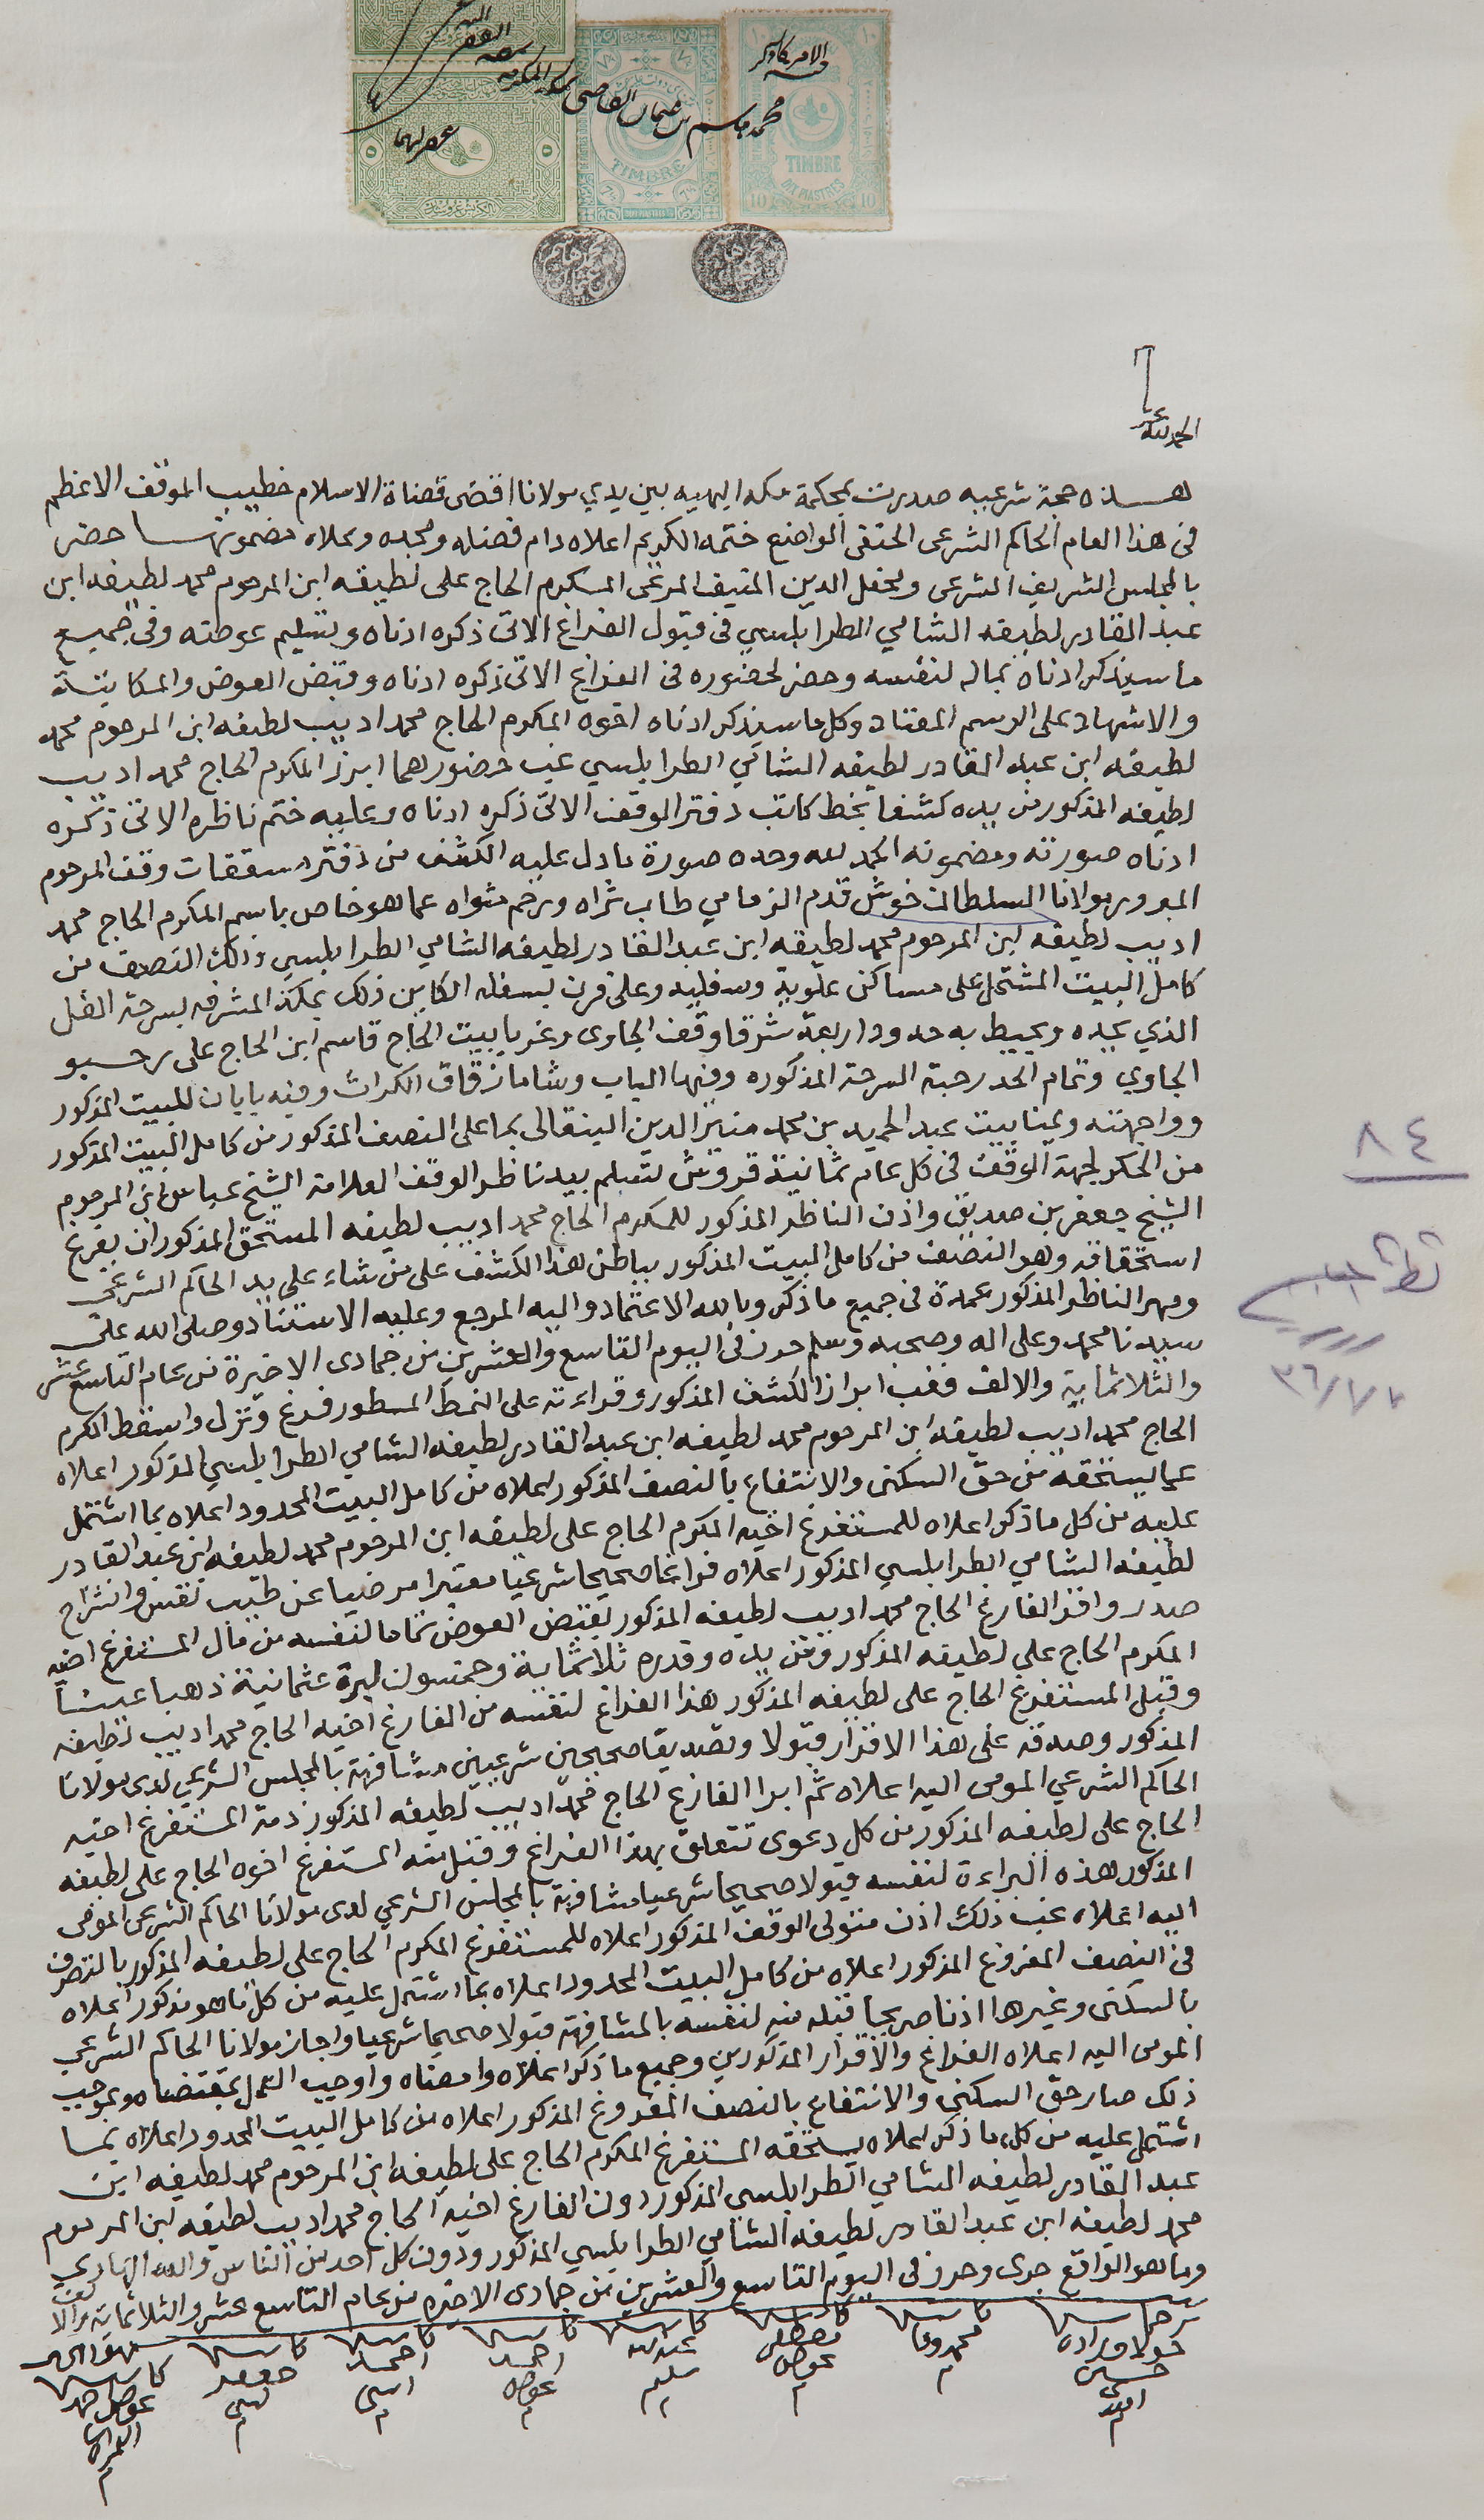 الامر كما ذكر
محمد هاشم بن عثمان القاضي بمكة المكرمة
TIMBRE
DIX PIASTRES
10 10
TIMBRE
الحمد لله
هـذه حجة شرعيه صدرت بمحكمة مكه البهيه بين يدي مولانا اقضى قضاة الاسلام خطيب الموقف الاعظم
في هذا العام الحاكم الشرعي الحنفي الواضع ختمه الكريم اعلاه دام فضله ومجده وعلاه مضمونها حضر
بالمجلس الشريف الشرعي ومحفل الدين المنيف المرعي المكرم الحاج على لطيفه ابن المرحوم محمد لطيفه ابن
عبد القادر لطيفه الشامي الطرابلسي في قبول الفراغ الاتى ذكره ادناه وتسليم عوضه وفي جميع
ما سيذكر ادناه بماله لنفسه وحضر لحضوره في الفراغ الاتى ذكره ادناه وقبض العوض والمكاتبة
والاشهاد على الرسم المعتاد وكل ما سيذكر ادناه اخوه المكرم الحاج محمد اديب لطيفه ابن المرحوم محمد
لطيفه ابن عبد القادر لطيفه الشامي الطرابلسي غب حضورهما ابرز المكرم الحاج محمد اديب
لطيفه المذكور من يده كشفا بخط كاتب دفتر الوقف الاتى ذكره ادناه وعليه ختم ناظره الاتى ذكره
ادناه صورته ومضمونه الحمد لله وحده صورة ما دل عليه الكشف من دفتر مسقفات وقف المرحوم
المبرور مولانا السلطان خوش قدم الزمامي طاب ثراه ورخم مثواه عما هو خاص باسم المكرم الحاج محمد
اديب لطيفه ابن المرحوم محمد لطيفه ابن عبد القادر لطيفه الشامي الطرابلسي وذلك النصف من
كامل البيت المشتمل على مساكن علوية وسفليه وعلى فرن بسفله الكاين ذلك بمكة المشرفه بسرحة القل
الذي يحده ويحيط به حدود اربعة شرقا وقف الجاوى وغربا بيت الحاج قاسم ابن الحاج على حسبو
الجاوي وتمام الحد رحبة السرحة المذكوره وفيها الباب وشاما زقاق الكراث وفيه بابان للبيت المذكور
وواجهته ويمنا بيت عبد الحميد بن محمد منير الدين البنقالى بما على النصف المذكور من كامل البيت المذكور
من الحكر لجهة الوقف في كل عام ثمانية قروش تسلم بيد ناظر الوقف العلامة الشيخ عباس ابن المرحوم
الشيخ جعفر بن صديق واذن الناظر المذكور للمكرم الحاج محمد اديب لطيفه المستحق المذكور ان يفرغ
استحقاقه وهو النصف من كامل البيت المذكور بباطن هذا الكشف على من شاء على يد الحاكم الشرعي
ومهر الناظر المذكور عمدة في جميع ما ذكر وبالله الاعتماد واليه المرجع وعليه الاستناد وصلى الله على
سيدنا محمد وعلى اله وصحبه وسلم حرر في اليوم التاسع والعشرين من جمادى الاخيرة من عام التاسع عشر
والثلاثمائة والالف فغب ابراز الكشف المذكور وقراءته على النمط المسطور فرغ وتنزل واسقط المكرم
الحاج محمد اديب لطيفه ابن المرحوم محمد لطيفه ابن عبد القادر لطيفه الشامي الطرابلسي المذكور اعلاه
عما يستحقه من حق السكنى والانتفاع بالنصف المذكور اعلاه من كامل البيت المحدود اعلاه بما اشتمل
عليه من كل ما ذكر اعلاه للمستفرغ اخيه المكرم الحاج على لطيفه ابن المرحوم محمد لطيفه ابن عبد القادر
لطيفه الشامي الطرابلسي المذكور اعلاه فراغا صحيحا شرعيا معتبرا مرضيا عن طيب نفس وانشراح
صدر واقر الفارغ الحاج محمد اديب لطيفه المذكور بقبض العوض تماما لنفسه من مال المستفرغ اخيه
المكرم الحاج على لطيفه المذكور ومن يده وقدره ثلاثمائة وخمسون ليرة عثمانية ذهبا عينا
وقبل المستفرغ الحاج على لطيفه المذكور هذا الفراغ لنفسه من الفارغ اخيه الحاج محمد اديب لطيفه
المذكور وصدقه على هذا الاقرار قبولا وتصديقا صحيحين شرعيين مشافهة بالمجلس الشرعي لدى مولانا
الحاكم الشرعي المومى اليه اعلاه ثم ابرا الفارغ الحاج محمد اديب لطيفه المذكور ذمة المستفرغ اخيه
الحاج على لطيفه المذكور من كل دعوى تتعلق بهذا الفراغ وقبل منه المستفرغ اخوه الحاج على لطيفه
المذكور هذه البراءة لنفسه قبولا صحيحا شرعيا مشافهة بالمجلس الشرعي لدى مولانا الحاكم الشرعي المومى
اليه اعلاه غب ذلك اذن متولى الوقف المذكور اعلاه للمستفرغ المكرم الحاج على لطيفه المذكور بالتصرف
في النصف المفروغ المذكور اعلاه من كامل البيت المحدود اعلاه بما اشتمل عليه من كل ما هو مذكور اعلاه
بالسكنى وغيرها اذنا صريحا قبله منه لنفسه بالمشافهة قبولا صحيحا شرعيا واجاز مولانا الحاكم الشرعي
المومى اليه اعلاه الفراغ والاقرار المذكورين وجميع ما ذكر اعلاه وامضاه واوجب العمل بمقتضاه وبموجب
ذلك صار حق السكنى والانتفاع بالنصف المفروغ المذكور اعلاه من كامل البيت المحدود اعلاه بما
اشتمل عليه من كل ما ذكر اعلاه يستحقه المستفرغ المكرم الحاج على لطيفه ابن المرحوم محمد لطيفه ابن
عبد القادر لطيفه الشامي الطرابلسي المذكور دون الفارغ اخيه الحاج محمد اديب لطيفه ابن المرحوم
محمد لطيفه ابن عبد القادر لطيفه الشامي الطرابلسي المذكور ودون كل احد من الناس والله الهادي
وما هو الواقع جرى وحرر في اليوم التاسع والعشرين من جمادى الاخيره من عام التاسع عشر والثلاثمائة والالف
حسين افندى
محمد وفا
مصطفى عوض
عبد الله سليم
احمد عوض
احمد
جعفر
٨٤